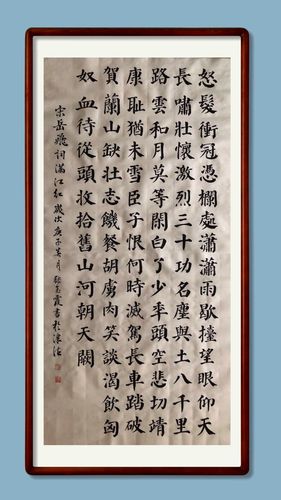 怒髮衝冠憑欄處瀟瀟雨歇擡望眼仰天
長嘯壯懷激烈三十功名塵與土八千里
路雲和月莫等閑白了少年頭空悲切靖
康耻猶未雪臣子恨何時滅駕長車踏破
賀蘭山缺壯志饑餐胡虜肉笑談渴飲匈
奴血待從頭收拾舊山河朝天闕
宋岳飛詞滿江紅 歲次庚子春月 張玉霞書於津沽